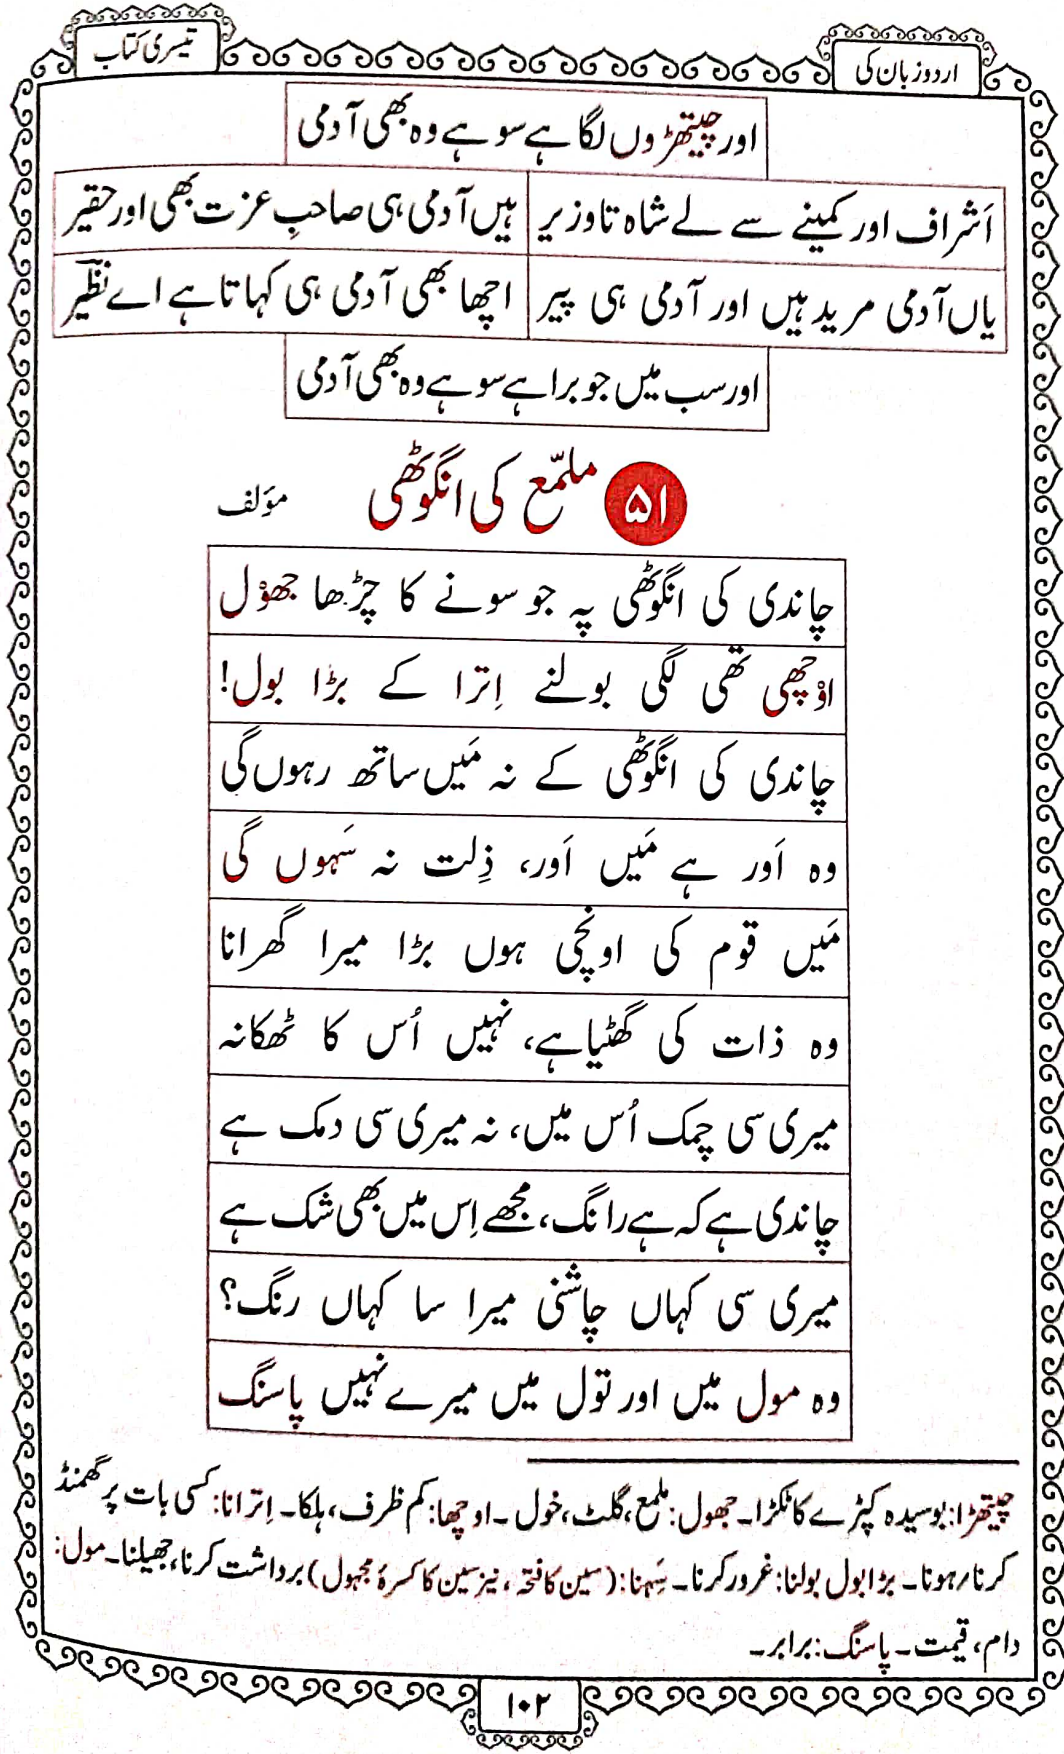 اردو زبان کی
تیسری کتاب
اور چیتھڑوں لگا ہے سو ہے وہ بھی آدمی
اَشراف اور کمینے سے لے شاہ تا وزیر
ہیں آدمی ہی صاحبِ عزت بھی اور حقیر
یاں آدمی مرید ہیں اور آدمی ہی پیر
اچھا بھی آدمی ہی کہاتا ہے اے نظیرؔ
اور سب میں جو برا ہے سو ہے وہ بھی آدمی
۵۱ ملمّع کی انگوٹھی
مؤلف
چاندی کی انگوٹھی پہ جو سونے کا چڑھا جھوْل
اوْچھی تھی لگی بولنے اِترا کے بڑا بول!
چاندی کی انگوٹھی کے نہ مَیں ساتھ رہوں گی
وہ اَور ہے مَیں اَور، ذِلت نہ سَہوں گی
مَیں قوم کی اونچی ہوں بڑا میرا گھرانا
وہ ذات کی گھٹیا ہے، نہیں اُس کا ٹھکانہ
میری سی چمک اُس میں، نہ میری سی دمک ہے
چاندی ہے کہ ہے رانگ، مجھے اِس میں بھی شک ہے
میری سی کہاں چاشنی میرا سا کہاں رنگ؟
وہ مول میں اور تول میں میرے نہیں پاسنگ
چیتھڑا: بوسیدہ کپڑے کا ٹکڑا۔ جھول: ملمع، گلٹ، خول ۔ اوچھا: کم ظرف، ہلکا۔ اِترانا: کسی بات پر گھمنڈ
کرنا/ہونا۔ بڑا بول بولنا: غرور کرنا۔ سَہنا: (سین کا فتحہ، نیز سین کا کسرۂ مجہول) برداشت کرنا، جھیلنا۔ مول:
دام، قیمت۔ پاسنگ: برابر۔
۱۰۲